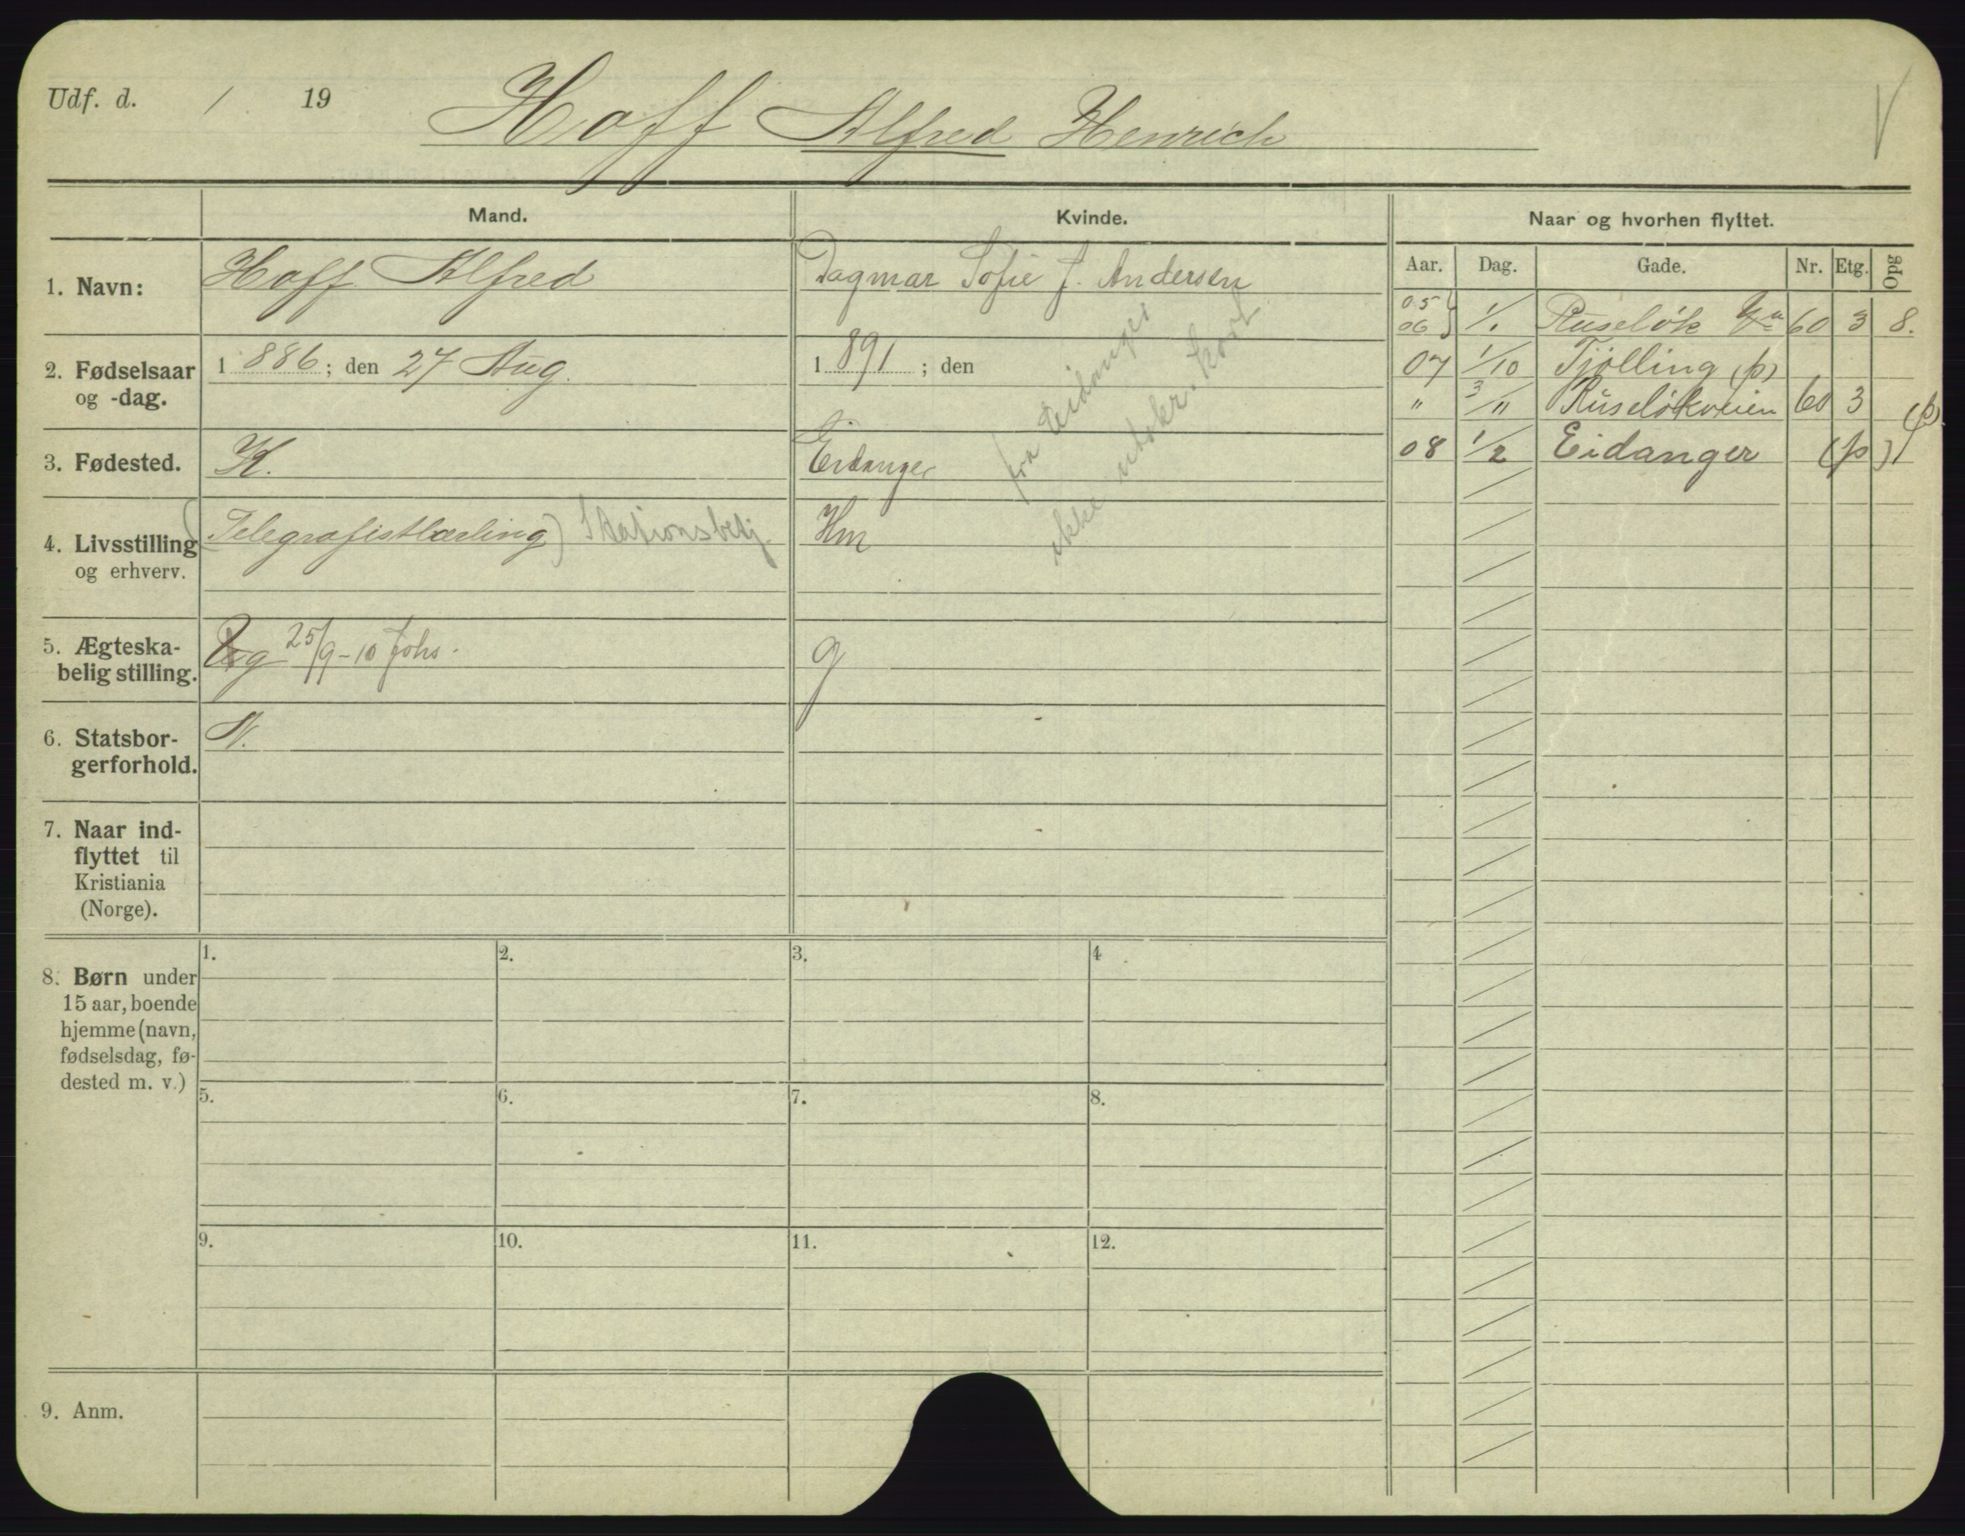 Udf. d. / 19 Hoff Alfred Henrich
Mand. Kvinde. Naar og hvorhen flyttet.
Aar. Dag. Gade. Nr. Etg. Opg
1. Navn: Hoff Alfred Dagmar Sofie J. Andersen
05 06 1/1 Ruseløk 60 3 8.
2. Fødselsaar og -dag. 1886; den 27 Aug. 1891; den
07 1/10 Tjølling (p)
" 3/11 Ruseløkveien 60 3 (p)
3. Fødested. K. Eidanger
08 1/2 Eidanger (p)
fra Eidanger
ikke utskr. kort
4. Livsstilling og erhverv. (Telegrafistlærling) Stationsbetj. Hm
5. Ægteska-
belig stilling. g 25/9-10 Johs. g
6. Statsbor-
gerforhold. N.
7. Naar ind-
flyttet til
Kristiania
(Norge).
8. Børn under
15 aar, boende
hjemme (navn,
fødselsdag, fø-
dested m. v.)
1. 2. 3. 4
5. 6. 7. 8.
9. 10. 11. 12.
9. Anm.